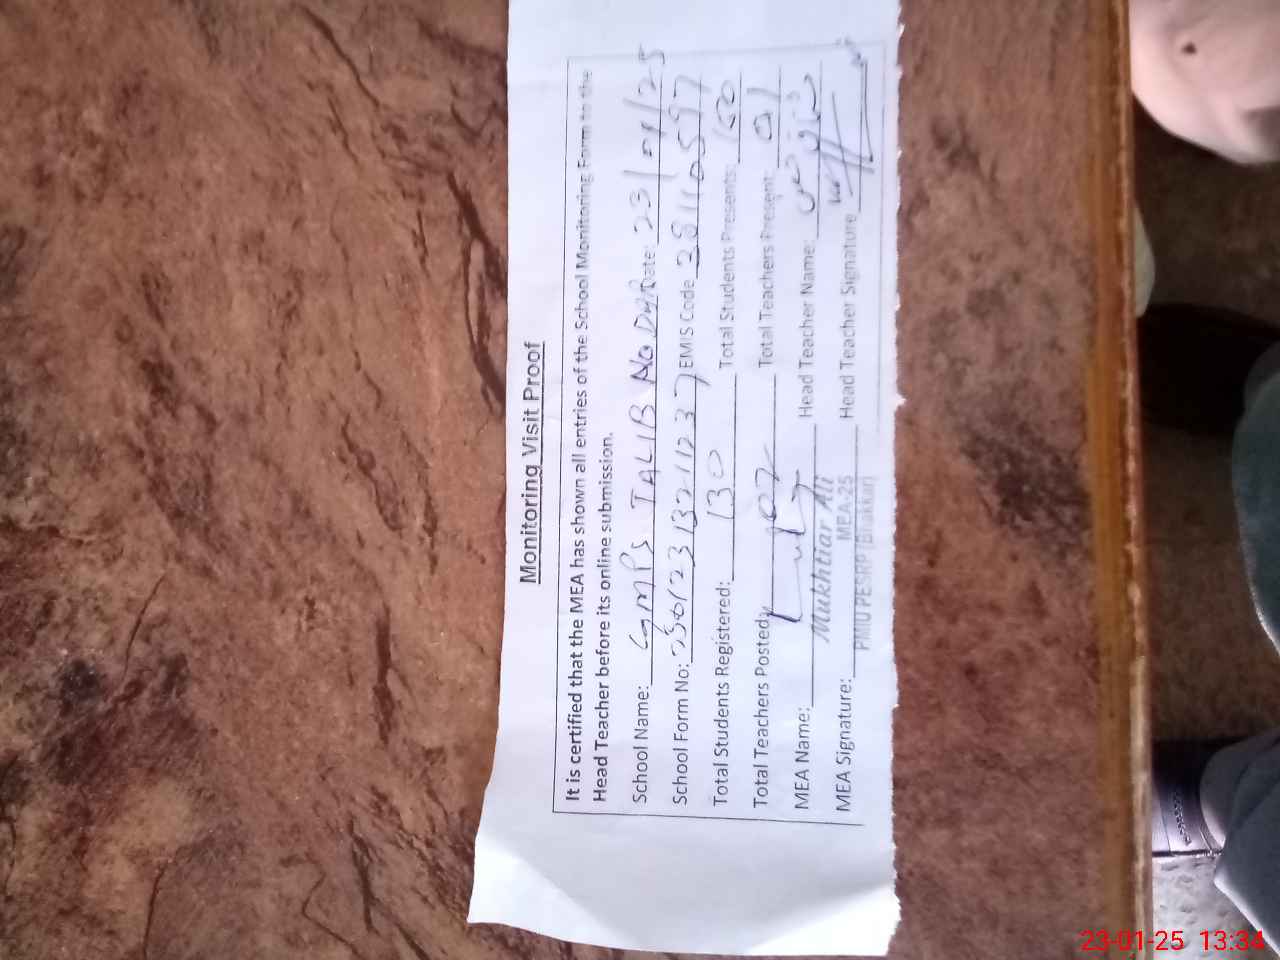 Monitoring Visit Proof
It is certified that the MEA has shown all entries of the School Monitoring Form to the
Head Teacher before its online submission.
School Name: GMPS TALIB Date: 23/01/25
School Form No: EMIS Code
Total Students Registered: 130 Total Students Presents:
Total Teachers Posted: 02 Total Teachers Present: 01
MEA Name: Head Teacher Name:
Mukhtiar Ali
MEA Signature: MEA-25 Head Teacher Signature
PMIU PESRP (Bhakkar)
23-01-25 13:34